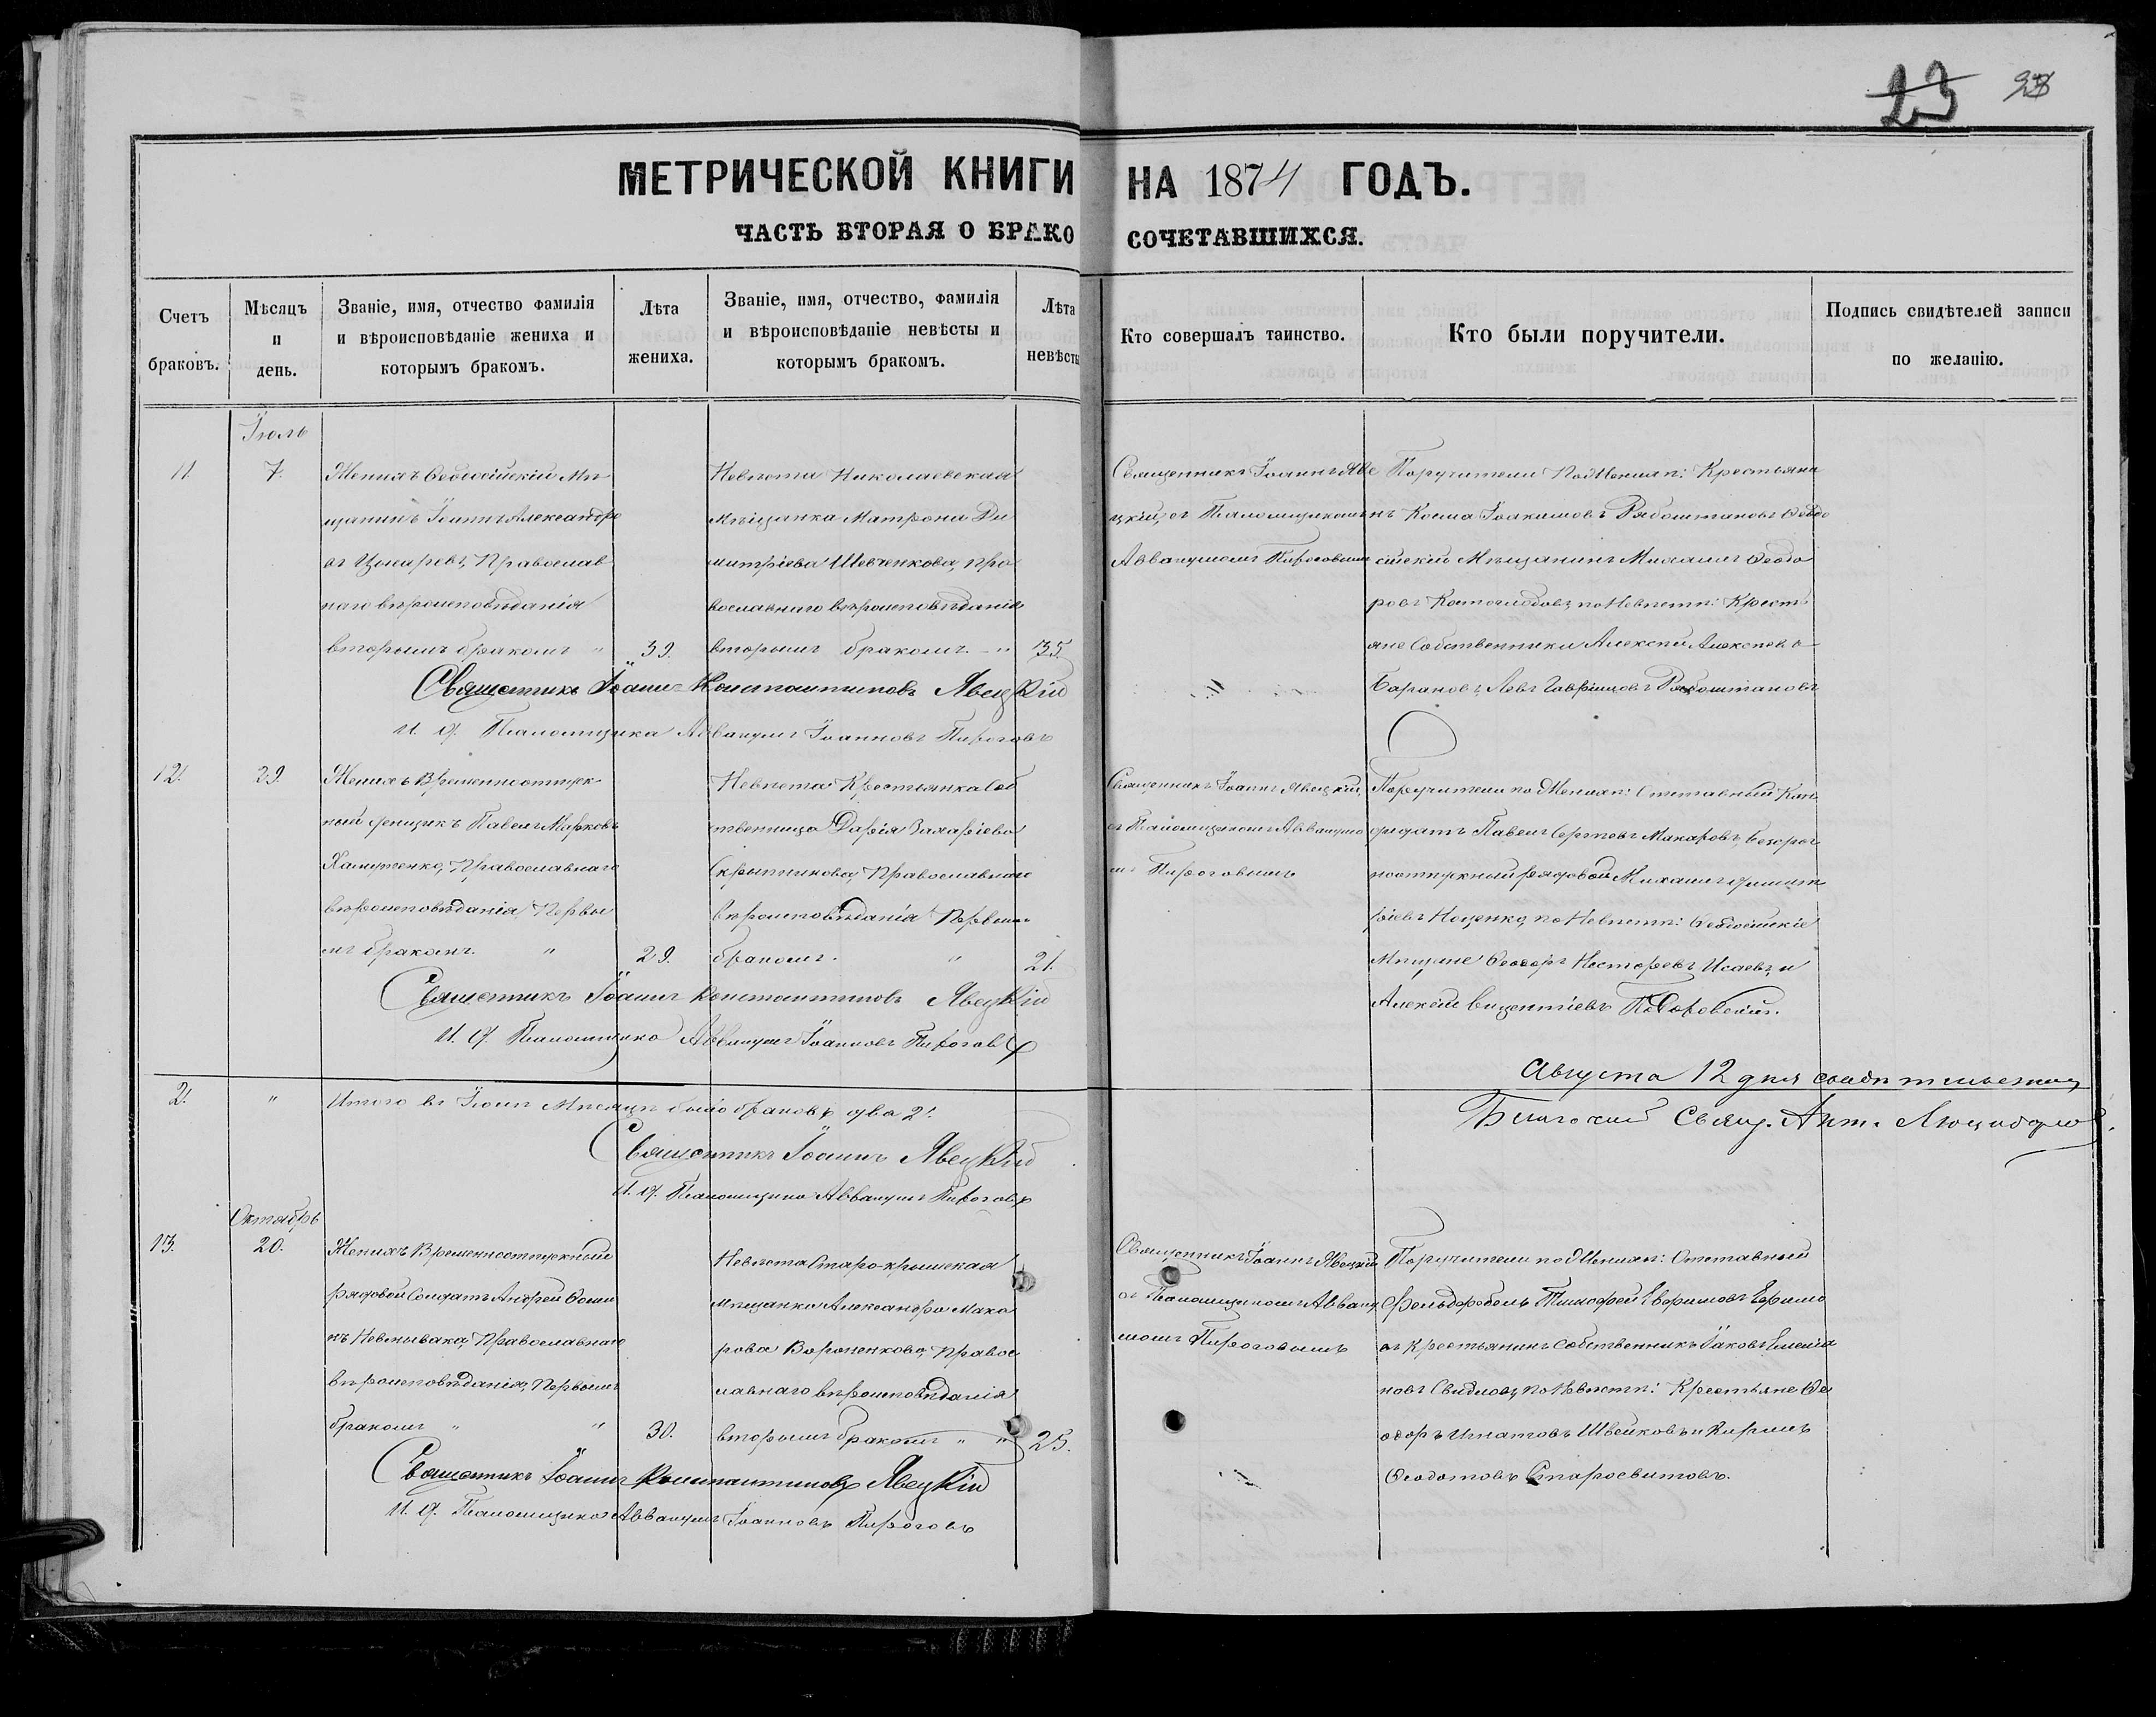 23
МЕТРИЧЕСКОЙ КНИГИ НА 1874 ГОДЪ.
ЧАСТЬ ВТОРАЯ О БРАКОСОЧЕТАВШИХСЯ.
Счетъ браковъ.
Мѣсяцъ и день.
Званіе, имя, отчество фамилія
и вѣроисповѣданіе жениха и
которымъ бракомъ.
Лѣта жениха.
Званіе, имя, отчество, фамилія
и вѣроисповѣданіе невѣсты и
которымъ бракомъ.
Лѣта невѣсты
Кто совершалъ таинство.
Кто были поручители.
Подпись свидѣтелей записи
по желанію.
Іюль
11. 7.
Женихъ Ѳеодосійскій Мѣ
щанинъ Іоаннъ Александро
въ Православ
наго вѣроисповѣданія
вторымъ бракомъ " 39.
Невѣста Николаевская
Мѣщанка Матрона Ди
митріева Шевченкова, пра
вославнаго вѣроисповѣданія
вторымъ бракомъ. " 35.
Священникъ Іоаннъ Яве
цкій, съ Псаломщикомъ
Аввакумомъ Пироговымъ
Поручители по Женихѣ: Крестьяни
нъ Косма Іоакимовъ Рябоштановъ Ѳеодо
сійскій Мѣщанинъ Михаилъ Ѳеодо
ровъ по Невѣстѣ: Кресть
яне Собственники Алексѣй Алексѣевъ
Барановъ, Левъ Гавріиловъ Рябоштановъ
Священникъ Іоаннъ Константиновъ Явецкій
И. д. Псаломщика Аввакумъ Іоанновъ Пироговъ
12. 29.
Женихъ Временноотпуск
ной Павелъ Марковъ
Православнаго
вѣроисповѣданія, Первы
мъ бракомъ. " 29.
Невѣста Крестьянка Соб
твенница Дарія Захаріева
Скрыпникова, Православнаго
вѣроисповѣданія Первымъ
бракомъ. " 21.
Священникъ Іоаннъ Явецкій,
съ Псаломщикомъ Аввакумо
мъ Пироговымъ
Поручители по Женихѣ: Отставный Кан
дидатъ Павелъ Сергѣевъ Макаровъ, Безсроч
ноотпускный рядовой Михаилъ Димит
ріевъ Коценко, по Невѣстѣ: Ѳеодосійскіе
Мѣщане Ѳеодоръ Несторовъ Исаевъ, и
Алексій Викентіевъ
Священникъ Іоаннъ Константиновъ Явецкій
И. д. Псаломщика Аввакумъ Іоанновъ Пироговъ
Августа 12 дня свидѣтельствовалъ
Благочинный Свящ. Ант.
2. " Итого въ Іюлѣ Мѣсяцѣ было браковъ два 2.
Священникъ Іоаннъ Явецкій
И. д. Псаломщика Аввакумъ Пироговъ
Октябрь
13. 20.
Женихъ Временноотпускный
рядовой Солдатъ Андрей Ѳоми
нъ Православнаго
вѣроисповѣданія, Первымъ
бракомъ " " 30.
Невѣста Старо-крымская
мѣщанка Александра Мака
рова Вороненкова, Правос
лавнаго вѣроисповѣданія
вторымъ бракомъ " " 25.
Священникъ Іоаннъ Явецкій
съ Псаломщикомъ Авваку
момъ Пироговымъ
Поручители по Женихѣ: Отставный
Фельдфебель Тимофей Ефимо
въ Крестьянинъ собственникъ Іаковъ Емелія
новъ по Невѣстѣ: Крестьяне Ѳе
одоръ Игнатовъ Швейковъ и Кириллъ
Ѳеодотовъ Старосвитовъ.
Священникъ Іоаннъ Константиновъ Явецкій
И. д. Псаломщика Аввакумъ Іоанновъ Пироговъ